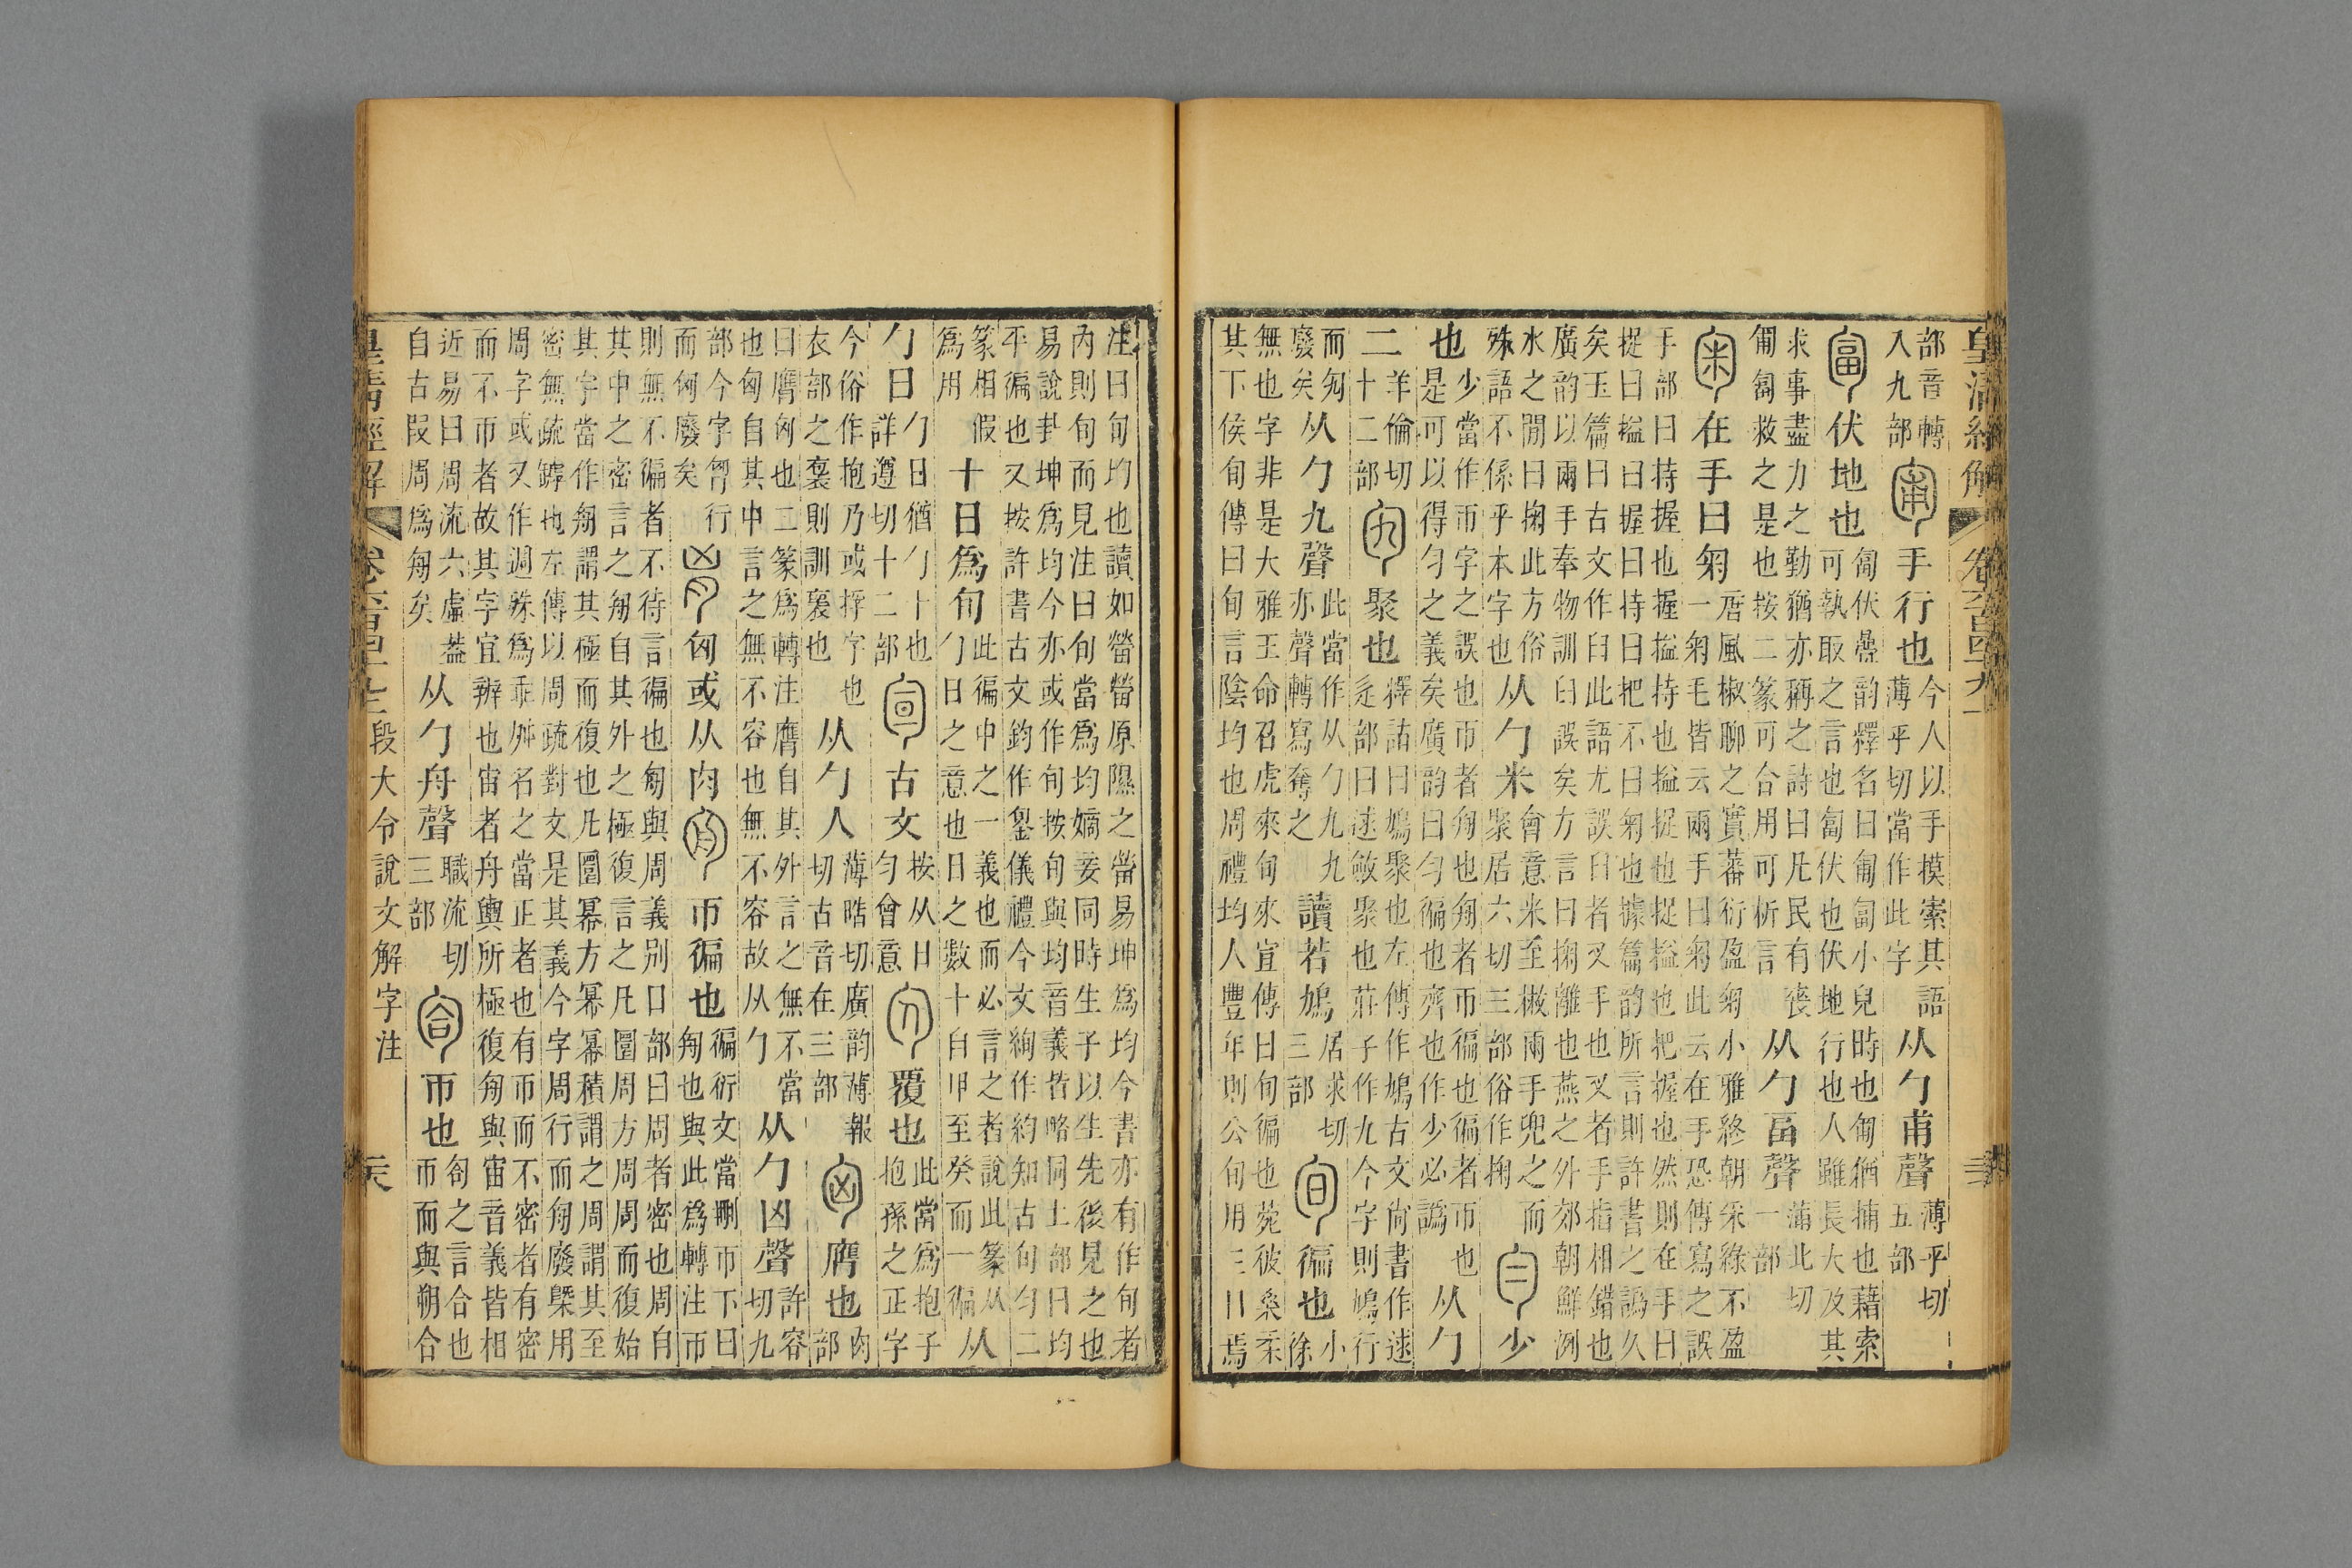 皇清經解 卷六百四十九
部音轉入九部 手行也 今人以手摸索其語薄乎切當作此字 从勹甫聲 薄乎切五部
伏地也 匐伏曡韵釋名曰匍匐小兒時也匍猶捕也藉索可執取之言也匐伏也伏地行也人雖長大及其
求事盡力之勤猶亦稱之詩曰凡民有喪匍匐救之是也按二篆可合用可析言 从勹畐聲 蒲北切一部
在手曰匊 唐風椒聊之實蕃衍盈匊小雅終朝采綠不盈一匊毛皆云兩手曰匊此云在手恐傳寫之誤
手部曰持握也握搤持也搤捉也捉搤也把握也然則在手曰捉曰搤曰握曰持曰把不曰匊也據篇韵所言則許書之譌久
矣玉篇曰古文作臼此語尤誤臼者叉手也叉者手指相錯也廣韵以兩手奉物訓臼誤矣方言曰掬離也燕之外郊朝鮮洌
水之閒曰掬此方俗殊語不係乎本字也 从勹米 會意米至㪔兩手兜之而聚居六切三部俗作掬 少
也 少當作帀字之誤也帀者匊也匊者帀徧也徧者帀也是可以得匀之義矣廣韵曰匀徧也齊也作少必譌 从勹
二 羊倫切十二部 聚也 釋詁曰鳩聚也左傳作鳩古文尙書作逑辵部曰逑斂聚也莊子作九今字則鳩行
而勼廢矣 从勹九聲 此當作从勹九九亦聲轉寫奪之 讀若鳩 居求切三部 徧也 小徐
無也字非是大雅王命召虎來旬來宣傳曰旬徧也菀彼桑柔其下侯旬傳曰旬言陰均也周禮均人豐年則公旬用三日焉
注曰旬均也讀如㽦㽦原隰之㽦易坤爲均今書亦有作旬者內則旬而見注曰旬當爲均嫡妾同時生子以生先後見之也
易說卦坤爲均今亦或作旬按旬與均音義皆略同土部曰均平徧也又按許書古文鈞作銞儀禮今文絢作約知古旬勻二
篆相假爲用 十日爲旬 此徧中之一義也而必言之者說此篆从勹日之意也日之數十自甲至癸而一徧 从
勹日 勹日猶勹十也詳遵切十二部 古文 按从日勻會意 覆也 此當爲抱子抱孫之正字
今俗作抱乃或抙字也衣部之褱則訓褱也 从勹人 薄晧切廣韵薄報切古音在三部 膺也 肉部
曰膺匈也二篆爲轉注膺自其外言之無不當也匈自其中言之無不容也無不容故从勹 从勹凶聲 許容切九
部今字胷行而匈廢矣 匈或从肉 帀徧也 徧衍文當刪帀下曰匊也與此爲轉注帀
則無不徧者不待言徧也匊與周義別口部曰周者密也周自其中之密言之匊自其外之極復言之凡圜周方周周而復始
其字當作匊謂其極而復也凡圜冪方冪冪積謂之周謂其至密無疏罅也左傳以周疏對文是其義今字周行而匊廢槩用
周字或又作週殊爲乖舛名之當正者也有帀而不密者有密而不帀者故其字宜辨也宙者舟輿所極復匊與宙音義皆相
近易曰周流六虛蓋自古叚周爲匊矣 从勹舟聲 職流切三部 帀也 匌之言合也帀而與朔合也
皇清經解 卷六百四十九 段大令說文解字注